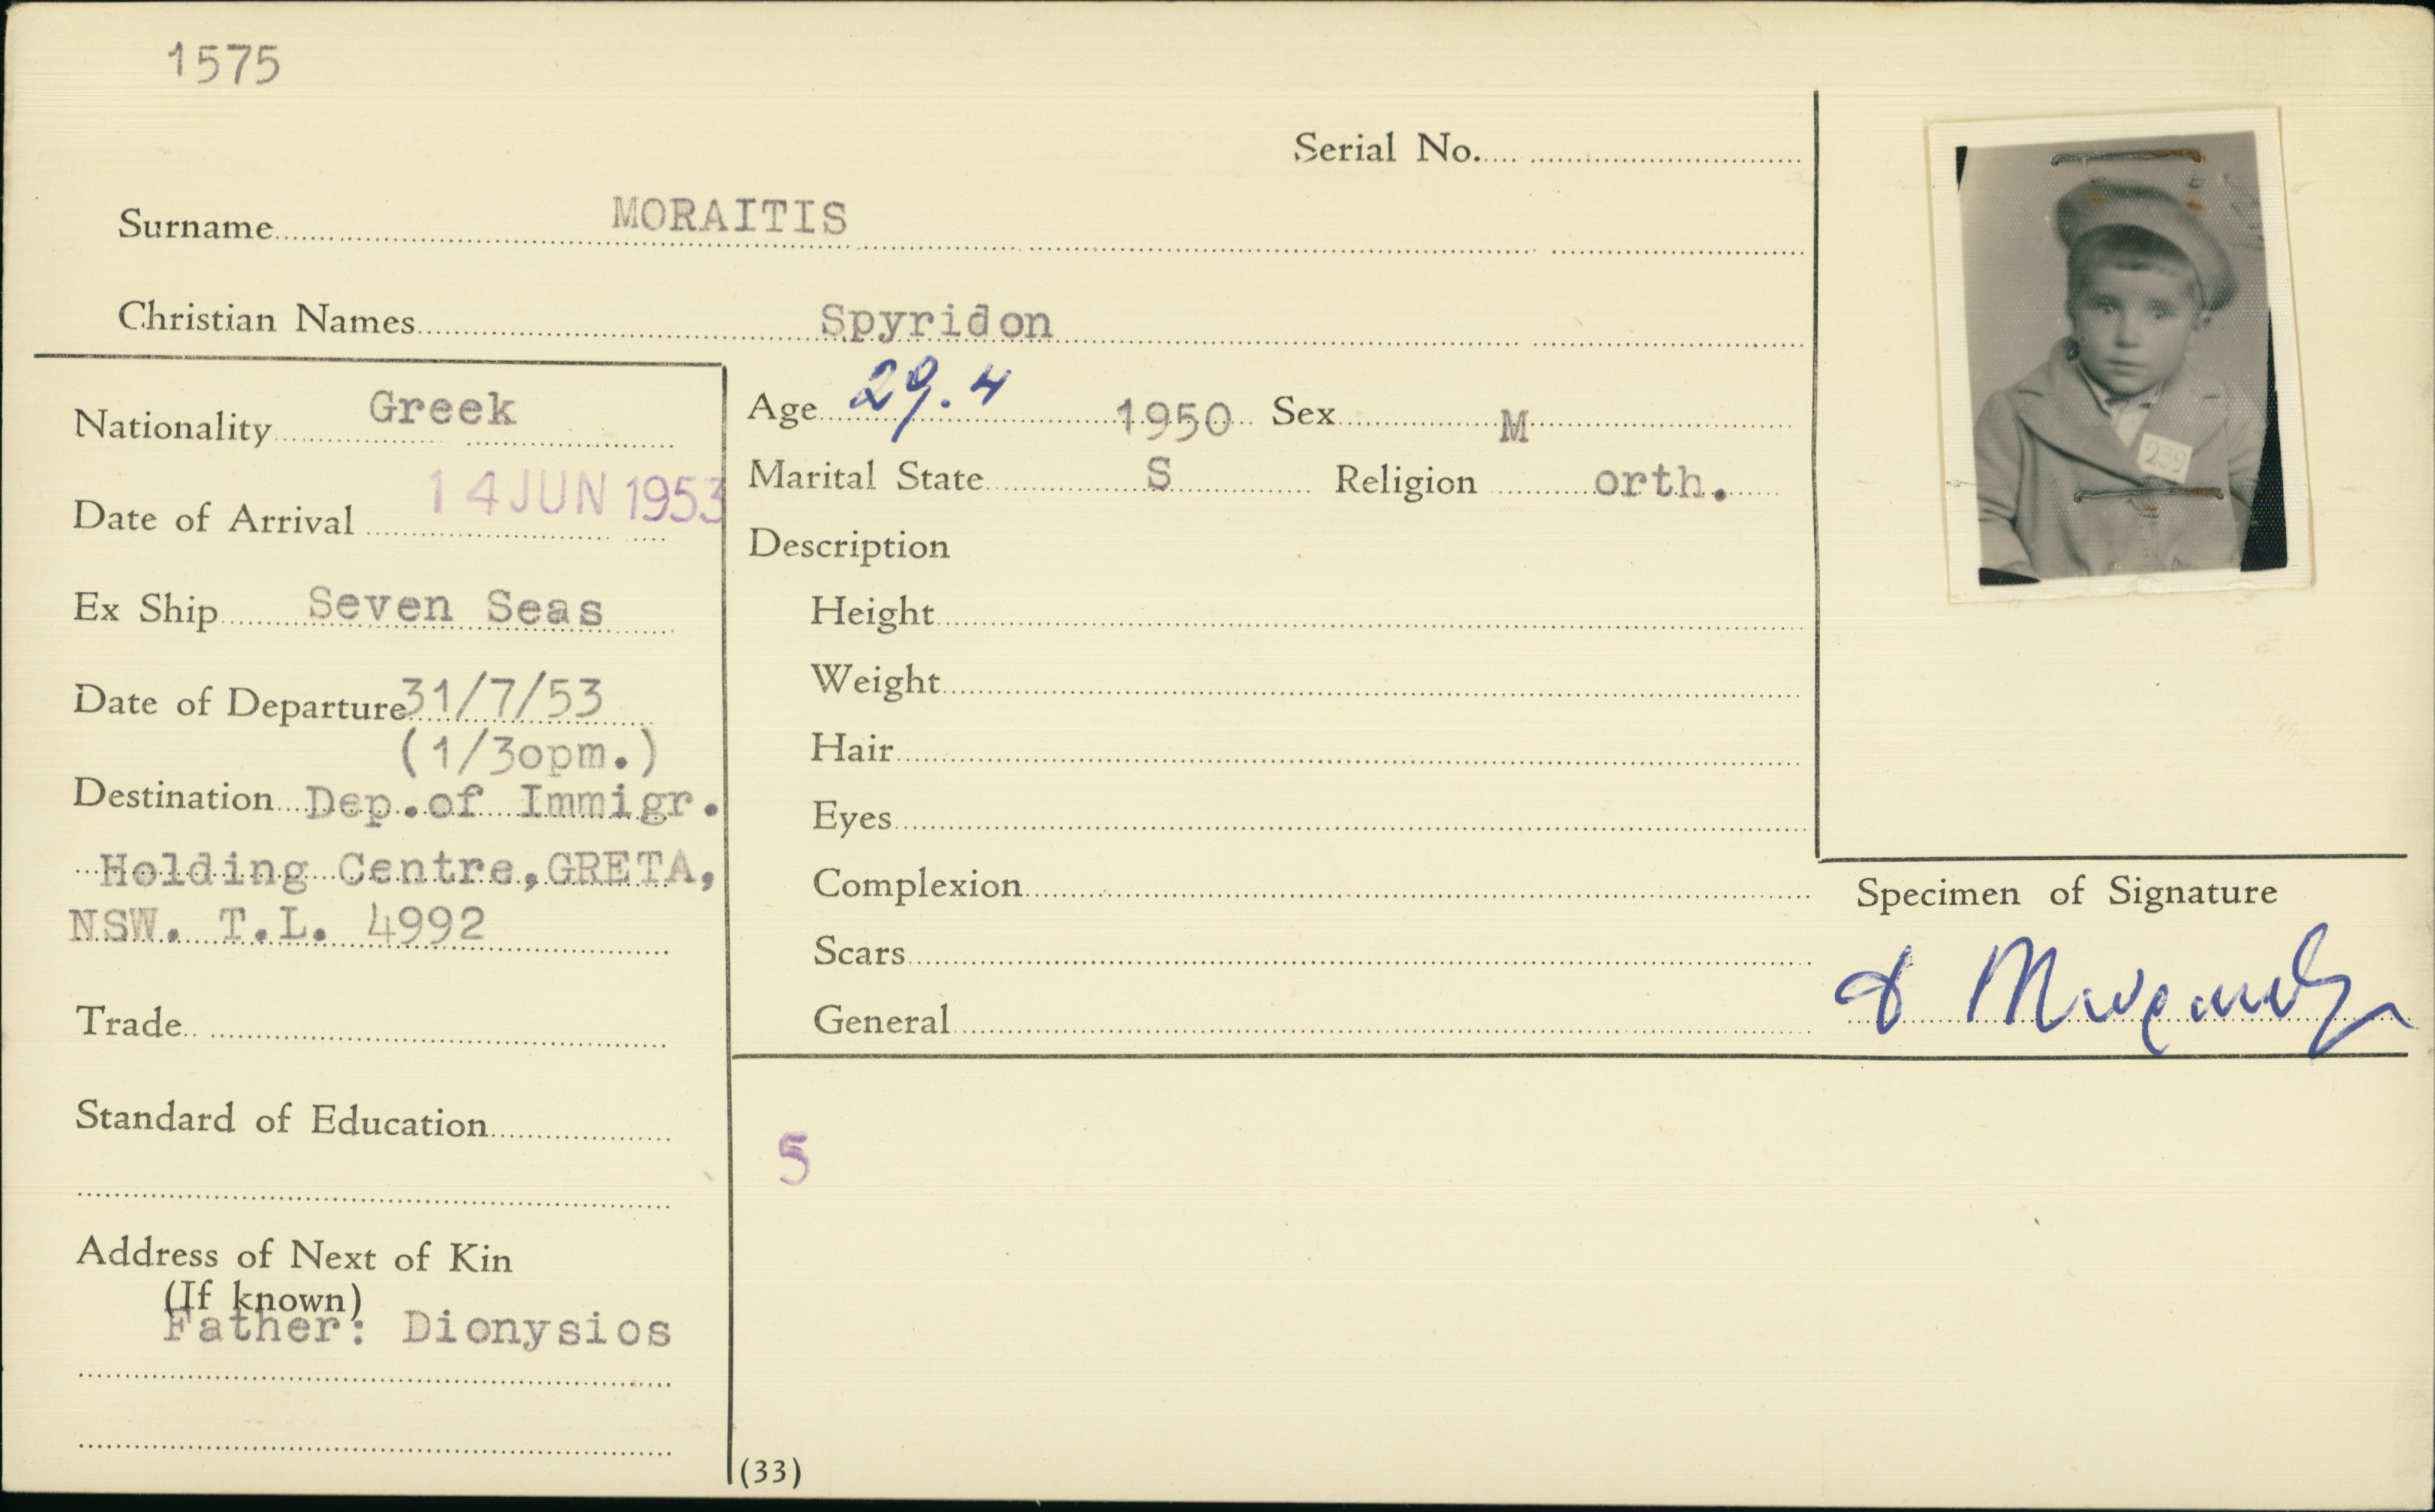 1575
Serial No.
Surname MORAITIS
Christian Names Spyridon
Nationality Greek
Date of Arrival 14 JUN 1953
Ex Ship Seven Seas
Date of Departure 31/7/53
(1/3opm.)
Destination Dep.of Immigr.
Holding Centre,GRETA,
NSW. T.L. 4992
Trade
Standard of Education
Address of Next of Kin
(If known)
Father: Dionysios
Age 29.4 1950 Sex M
Marital State S Religion orth.
Description
Height
Weight
Hair
Eyes
Complexion
Scars
General
5
(33)
239
Specimen of Signature